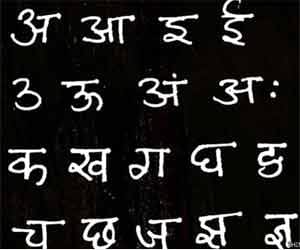 अ आ इ ई
उ ऊ अं अः
क ख ग घ ङ
च छ ज झ ञ